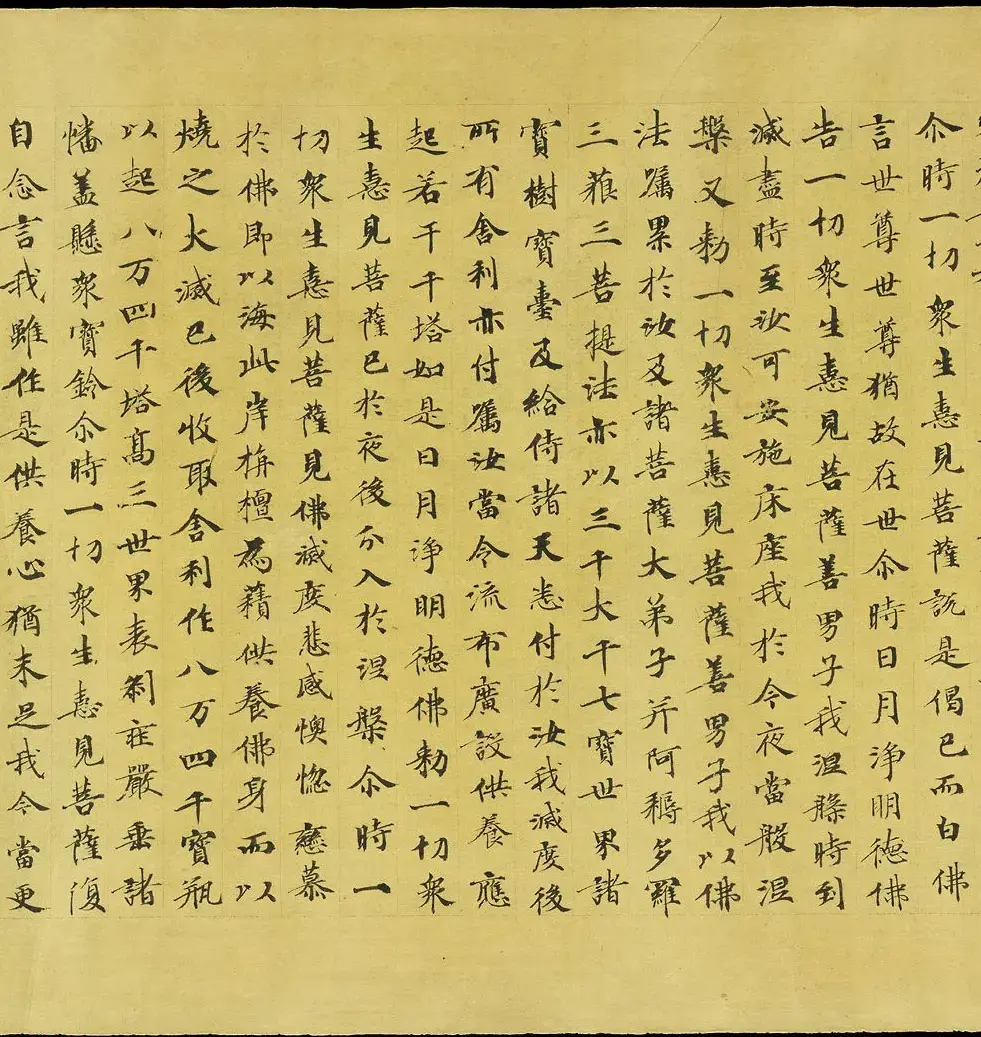 尒時一切衆生憙見菩薩說是偈已而白佛
言世尊世尊猶故在世尒時日月淨明德佛
告一切衆生憙見菩薩善男子我涅槃時到
滅盡時至汝可安施床座我於今夜當般涅
槃又勑一切衆生憙見菩薩善男子我以佛
法囑累於汝及諸菩薩大弟子并阿耨多羅
三藐三菩提法亦以三千大千七寶世界諸
寶樹寶臺及給侍諸天悉付於汝我滅度後
所有舍利亦付囑汝當令流布廣設供養應
起若干千塔如是日月淨明德佛勑一切衆
生憙見菩薩已於夜後分入於涅槃尒時一
切衆生憙見菩薩見佛滅度悲感懊惱戀慕
於佛即以海此岸栴檀為𧂐供養佛身而以
燒之火滅已後收取舍利作八万四千寶瓶
以起八万四千塔高三世界表剎莊嚴垂諸
幡蓋懸衆寶鈴尒時一切衆生憙見菩薩復
自念言我雖作是供養心猶未足我今當更